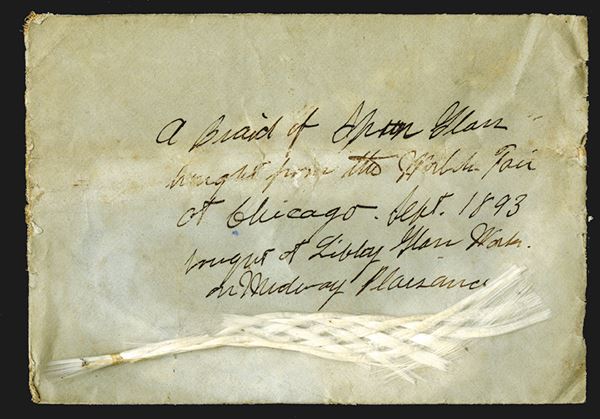 A Braid of Spun Glass
brought from the Worlds Fair
at Chicago. Sept. 1893
bought at Libby Glass Works.
on Midway Plaisance